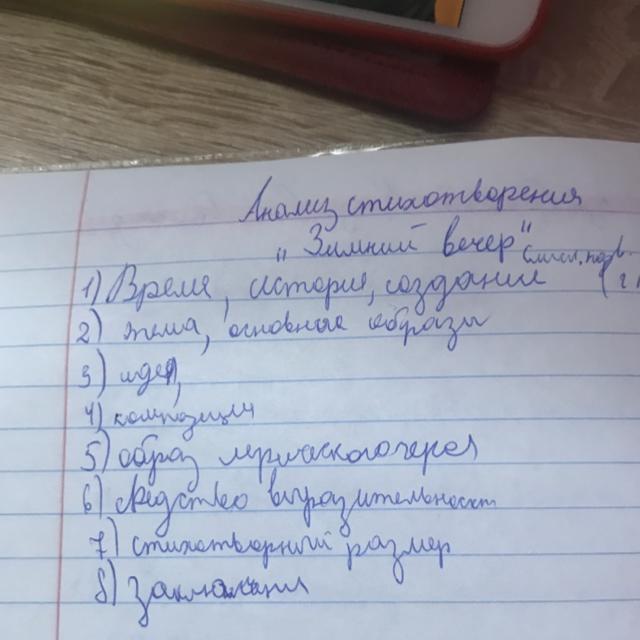 Анализ стихотворения
"Зимний вечер"
1) Время, история, создание
2) тема, основные образы
3) идея,
4) композиция
5) образ лирического героя
6) средство выразительност
7) стихотворный размер
8) заключения